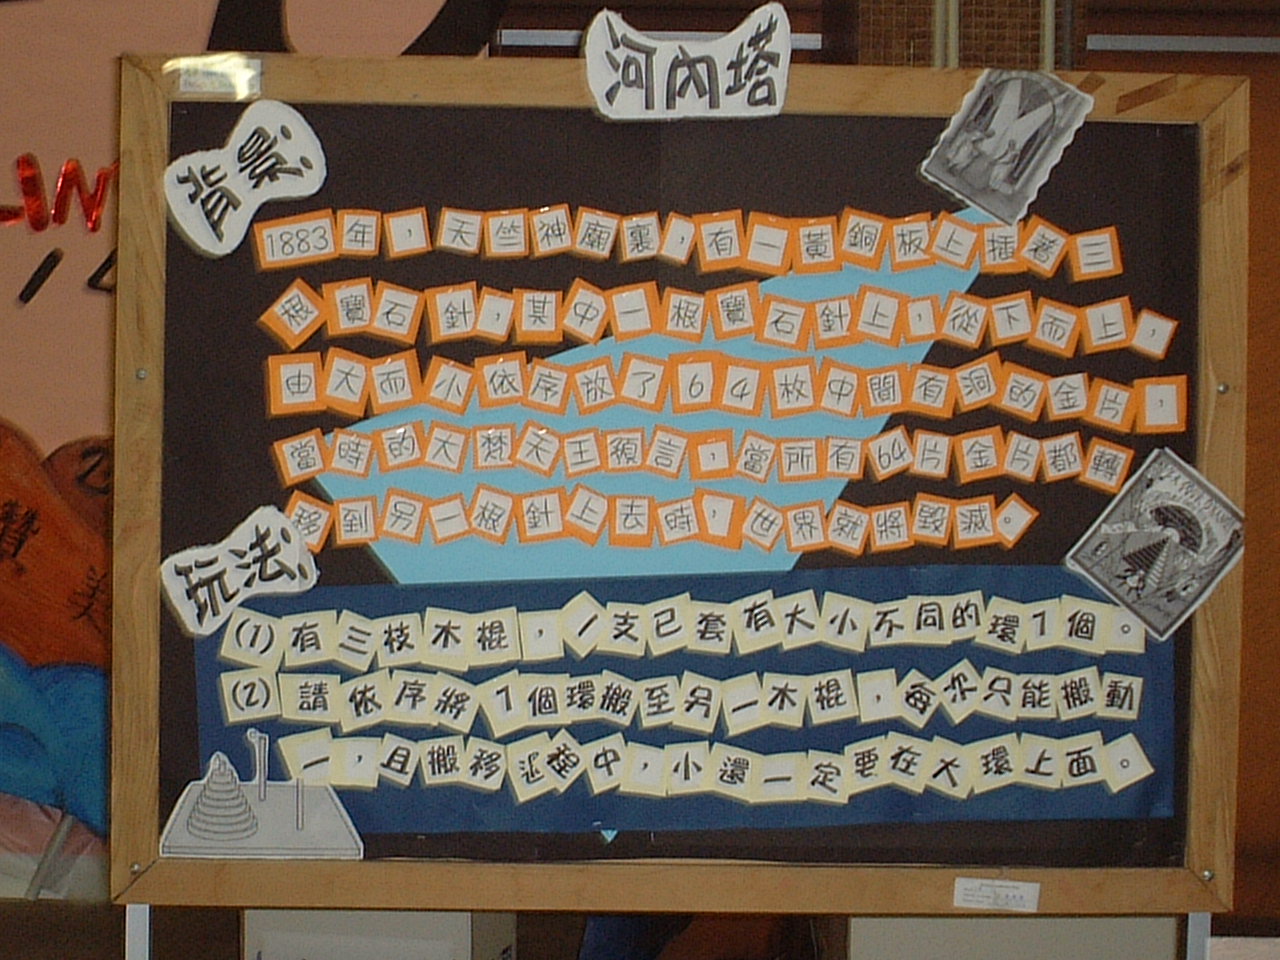 河內塔
背景:
1883年，天竺神廟裏，有一黃銅板上插著三
根寶石針，其中一根寶石針上，從下而上，
由大而小依序放了64枚中間有洞的金片，
當時的大梵天王預言，當所有64片金片都轉
移到另一根針上去時，世界就將毀滅。
玩法:
(1)有三枝木棍，1支已套有大小不同的環7個。
(2)請依序將7個環搬至另一木棍，每次只能搬動
一，且搬移過程中，小還一定要在大環上面。
讚美